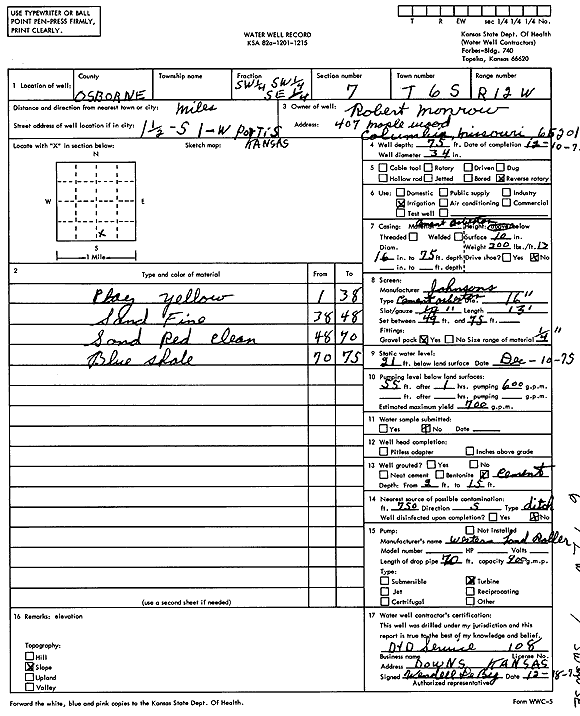 USE TYPEWRITER OR BALL
POINT PEN-PRESS FIRMLY,
PRINT CLEARLY.
WATER WELL RECORD
KSA 82a-1201-1215
T R EW sec 1/4 1/4 1/4 No.
Kansas State Dept. Of Health
(Water Well Contractors)
Forbes-Bldg. 740
Topeka, Kansas 66620
1 Location of well: County OSBORNE Township name Fraction SW¼ SW¼ SE¼ Section number 7 Town number T 6 S Range number R 12 W
Distance and direction from nearest town or city: miles
Street address of well location if in city: 1½-S 1-W PORTIS KANSAS
3 Owner of well: Robert Monrow
Address: 407 Maple wood
Columbia, Missouri, 65201
Locate with "X" in section below: Sketch map:
N
W E
X
S
1 Mile
4 Well depth: 75 ft. Date of completion 12-10-7
Well diameter 34 in.
5 Cable tool Rotary Driven Dug
Hollow rod Jetted Bored X Reverse rotary
6 Use: Domestic Public supply Industry
X Irrigation Air conditioning Commercial
Test well
7 Casing: Material Cement asbestos Height: above/below
Threaded Welded Surface 10 in.
Diam. Weight 200 lbs./ft. 12
16 in. to 75 ft. depth Drive shoe? Yes X No
in. to ft. depth
8 Screen:
Manufacturer Johnsons
Type Cement asbestos Dia. 16"
Slot/gauze ¼" Length 13'
Set between 49 ft. and 75 ft.
Fittings:
Gravel pack X Yes No Size range of material ¼"
9 Static water level:
21 ft. below land surface Date Dec-10-75
10 Pumping level below land surfaces:
55 ft. after 1 hrs. pumping 600 g.p.m.
ft. after hrs. pumping g.p.m.
Estimated maximum yield 700 g.p.m.
11 Water sample submitted:
Yes X No Date
12 Well head completion:
Pitless adapter Inches above grade
13 Well grouted? Yes No
Neat cement Bentonite X Cement
Depth: From 2 ft. to 15 ft.
14 Nearest source of possible contamination:
ft. 750 Direction S Type ditch
Well disinfected upon completion? Yes X No
15 Pump: Not installed
Manufacturer's name Western Land Roller
Model number HP Volts
Length of drop pipe 70 ft. capacity 900 g.m.p.
Type:
Submersible X Turbine
Jet Reciprocating
Certrifugal Other
2 Type and color of material From To
Clay yellow 1 38
Sand Fine 38 48
Sand Red clean 48 70
Blue shale 70 75
(use a second sheet if needed)
16 Remarks: elevation
Topography:
Hill
X Slope
Upland
Valley
17 Water well contractor's certification:
This well was drilled under my jurisdiction and this
report is true to the best of my knowledge and belief.
D&D Service 108
Business name License No.
Address Downs KANSAS
Signed Wendell De Bey Date 12-18-7
Authorized representative
Forward the white, blue and pink copies to the Kansas State Dept. Of Health.
Form WWC-5